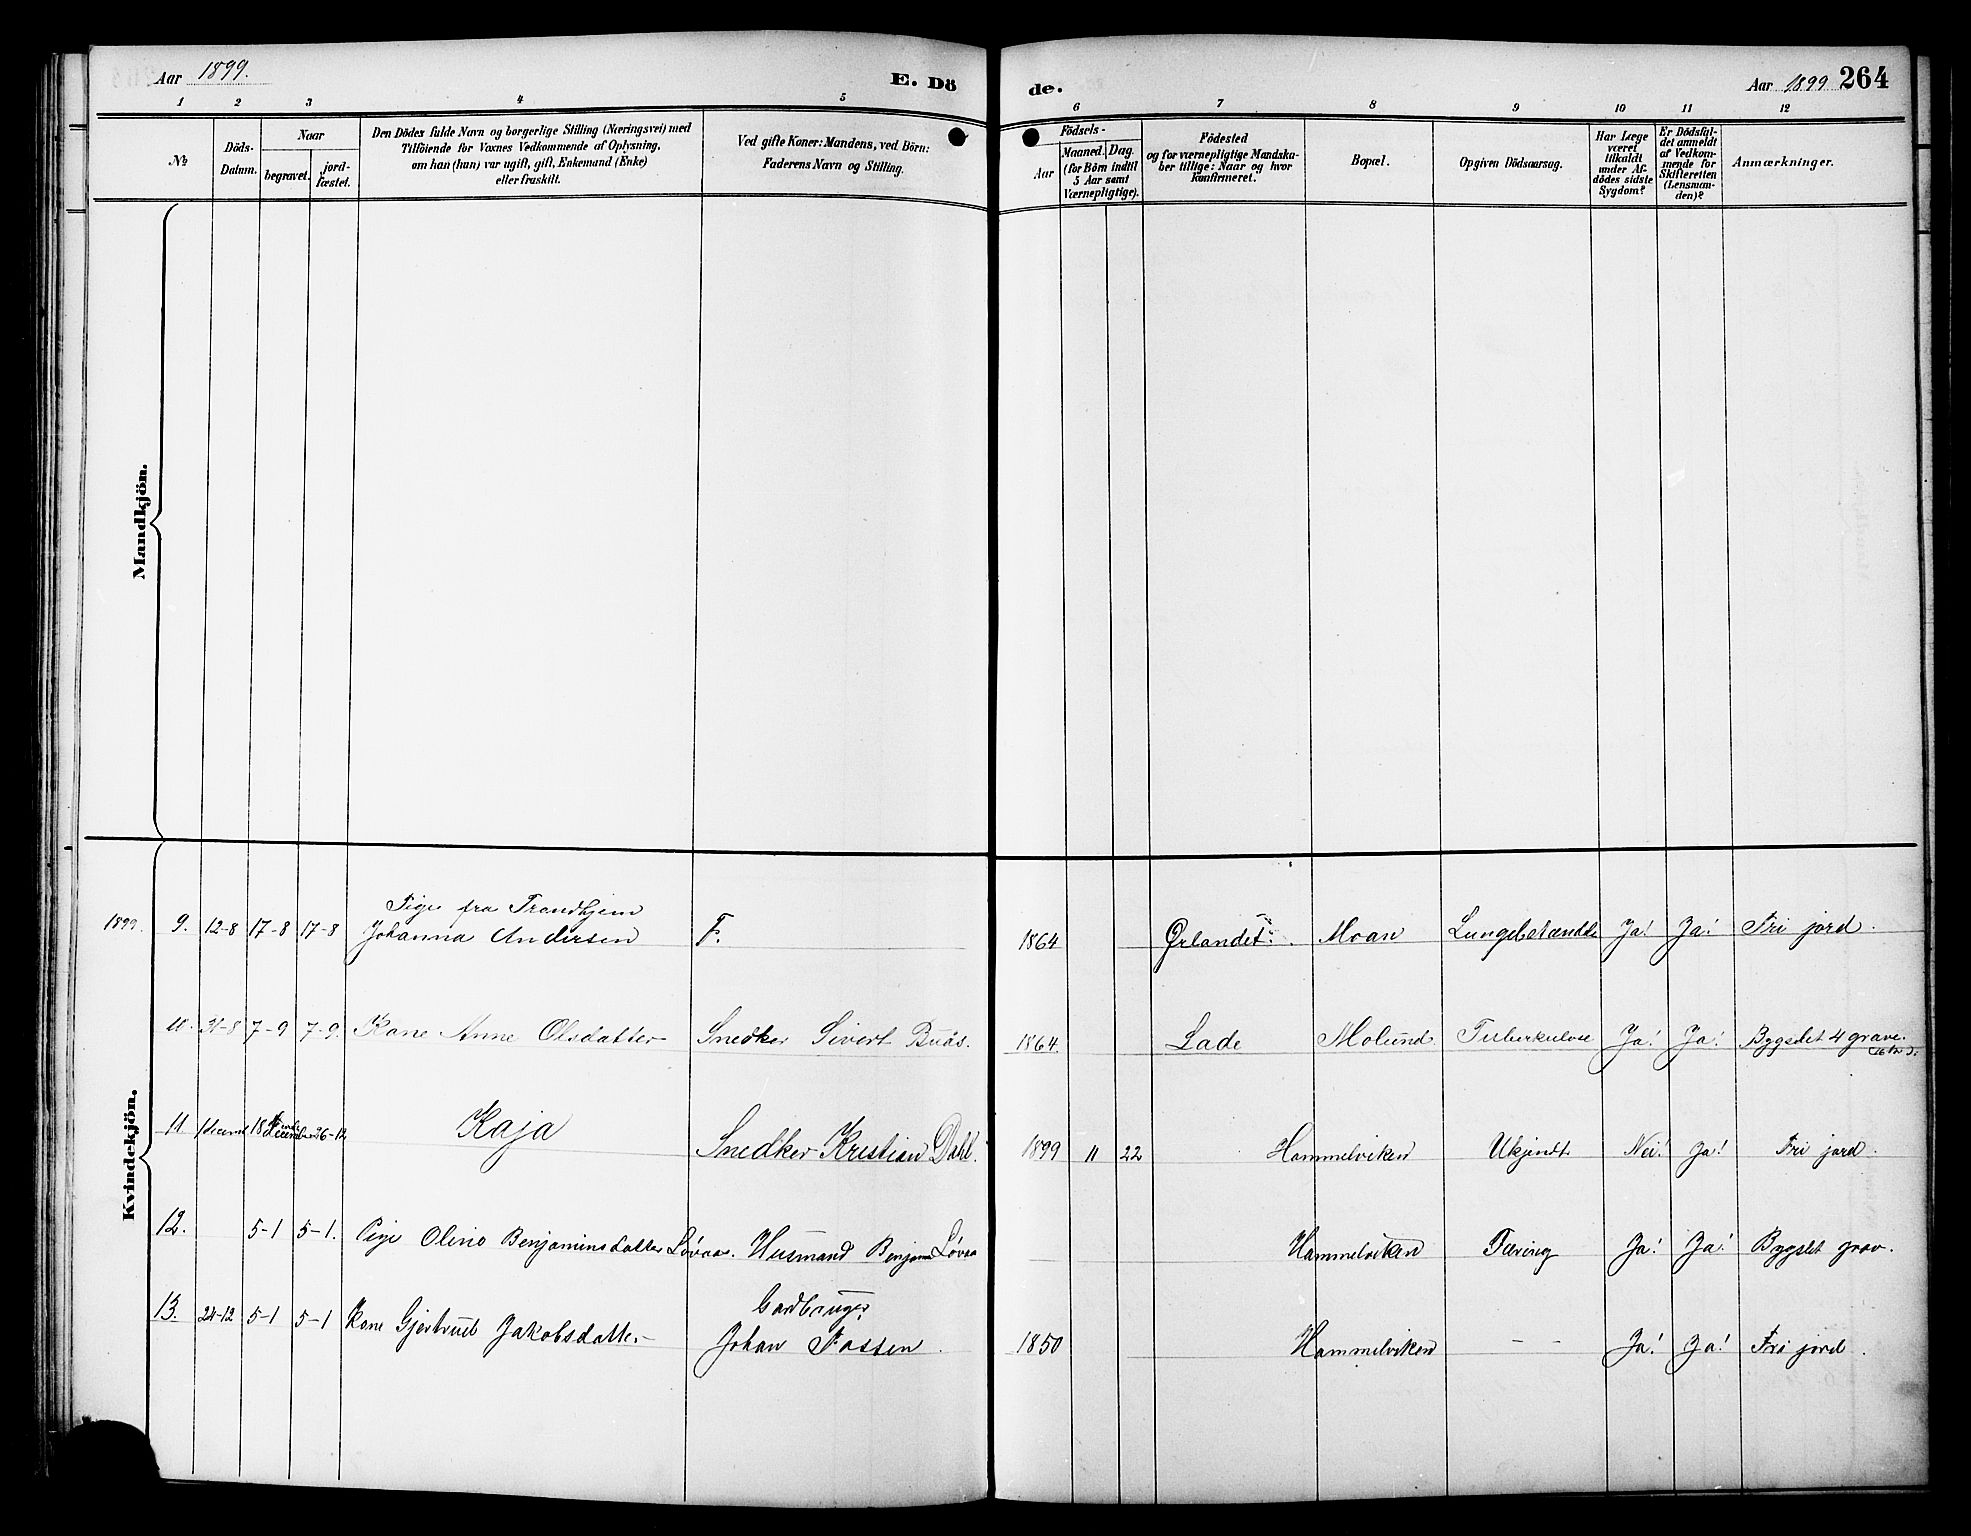 Aar 1899.
E. Dö
de.
Aar 1899
264
1 2 3 4 5 6 7 8 9 10 11 12
№
Döds-
Datum.
Naar
begravet.
jord-
fæstet.
Den Dödes fulde Navn og borgerlige Stilling (Næringsvei) med
Tilföiende for Voxnes Vedkommende af Oplysning,
om han (hun) var ugift, gift, Enkemand (Enke)
eller fraskilt.
Ved gifte Koner: Mandens, ved Börn:
Faderens Navn og Stilling.
Födsels-
Aar
Maaned. Dag.
(for Börn indtil
5 Aar samt
Værnepligtige).
Födested
og for værnepligtige Mandska-
ber tillige: Naar og hvor
konfirmeret.
Bopæl.
Opgiven Dödsaarsag.
Har Læge
været
tilkaldt
under Af-
dödes sidste
Sygdom?
Er Dödsfal-
det anmeldt
af Vedkom-
mende for
Skifteretten
(Lensman-
den)?
Anmærkninger.
Mandkjön.
Kvindekjön.
Pige fra Trondhjem
1899. 9. 12-8 17-8 17-8 Johanna Andersen F. 1864 Ørlandet. Moan Lungebetændelse Ja! Ja! Fri jord.
10. 31-8 7-9 7-9. Kone Anne Olsdatter Snedker Sivert Buås. 1864. Lade Molund Tuberkulose Ja! Ja! Bygslet 4 grave.
11 18 26-12 Kaja Snedker Kristian Dahl. 1899 11 22 Hommelviken Ukjendt Nei! Ja! Fri jord.
12. 5-1 5-1. Pige Oline Benjaminsdatter Løvaas. Husmand Benjamin Løvaas Hommelviken Tæring Ja! Ja! Bygslet grav.
Gardbruger
13. 24-12 5-1 5-1 Kone Gjertrued Jakobsdatter Johan Fossen. 1850 Hommelviken — — Ja! Ja! Fri jord.